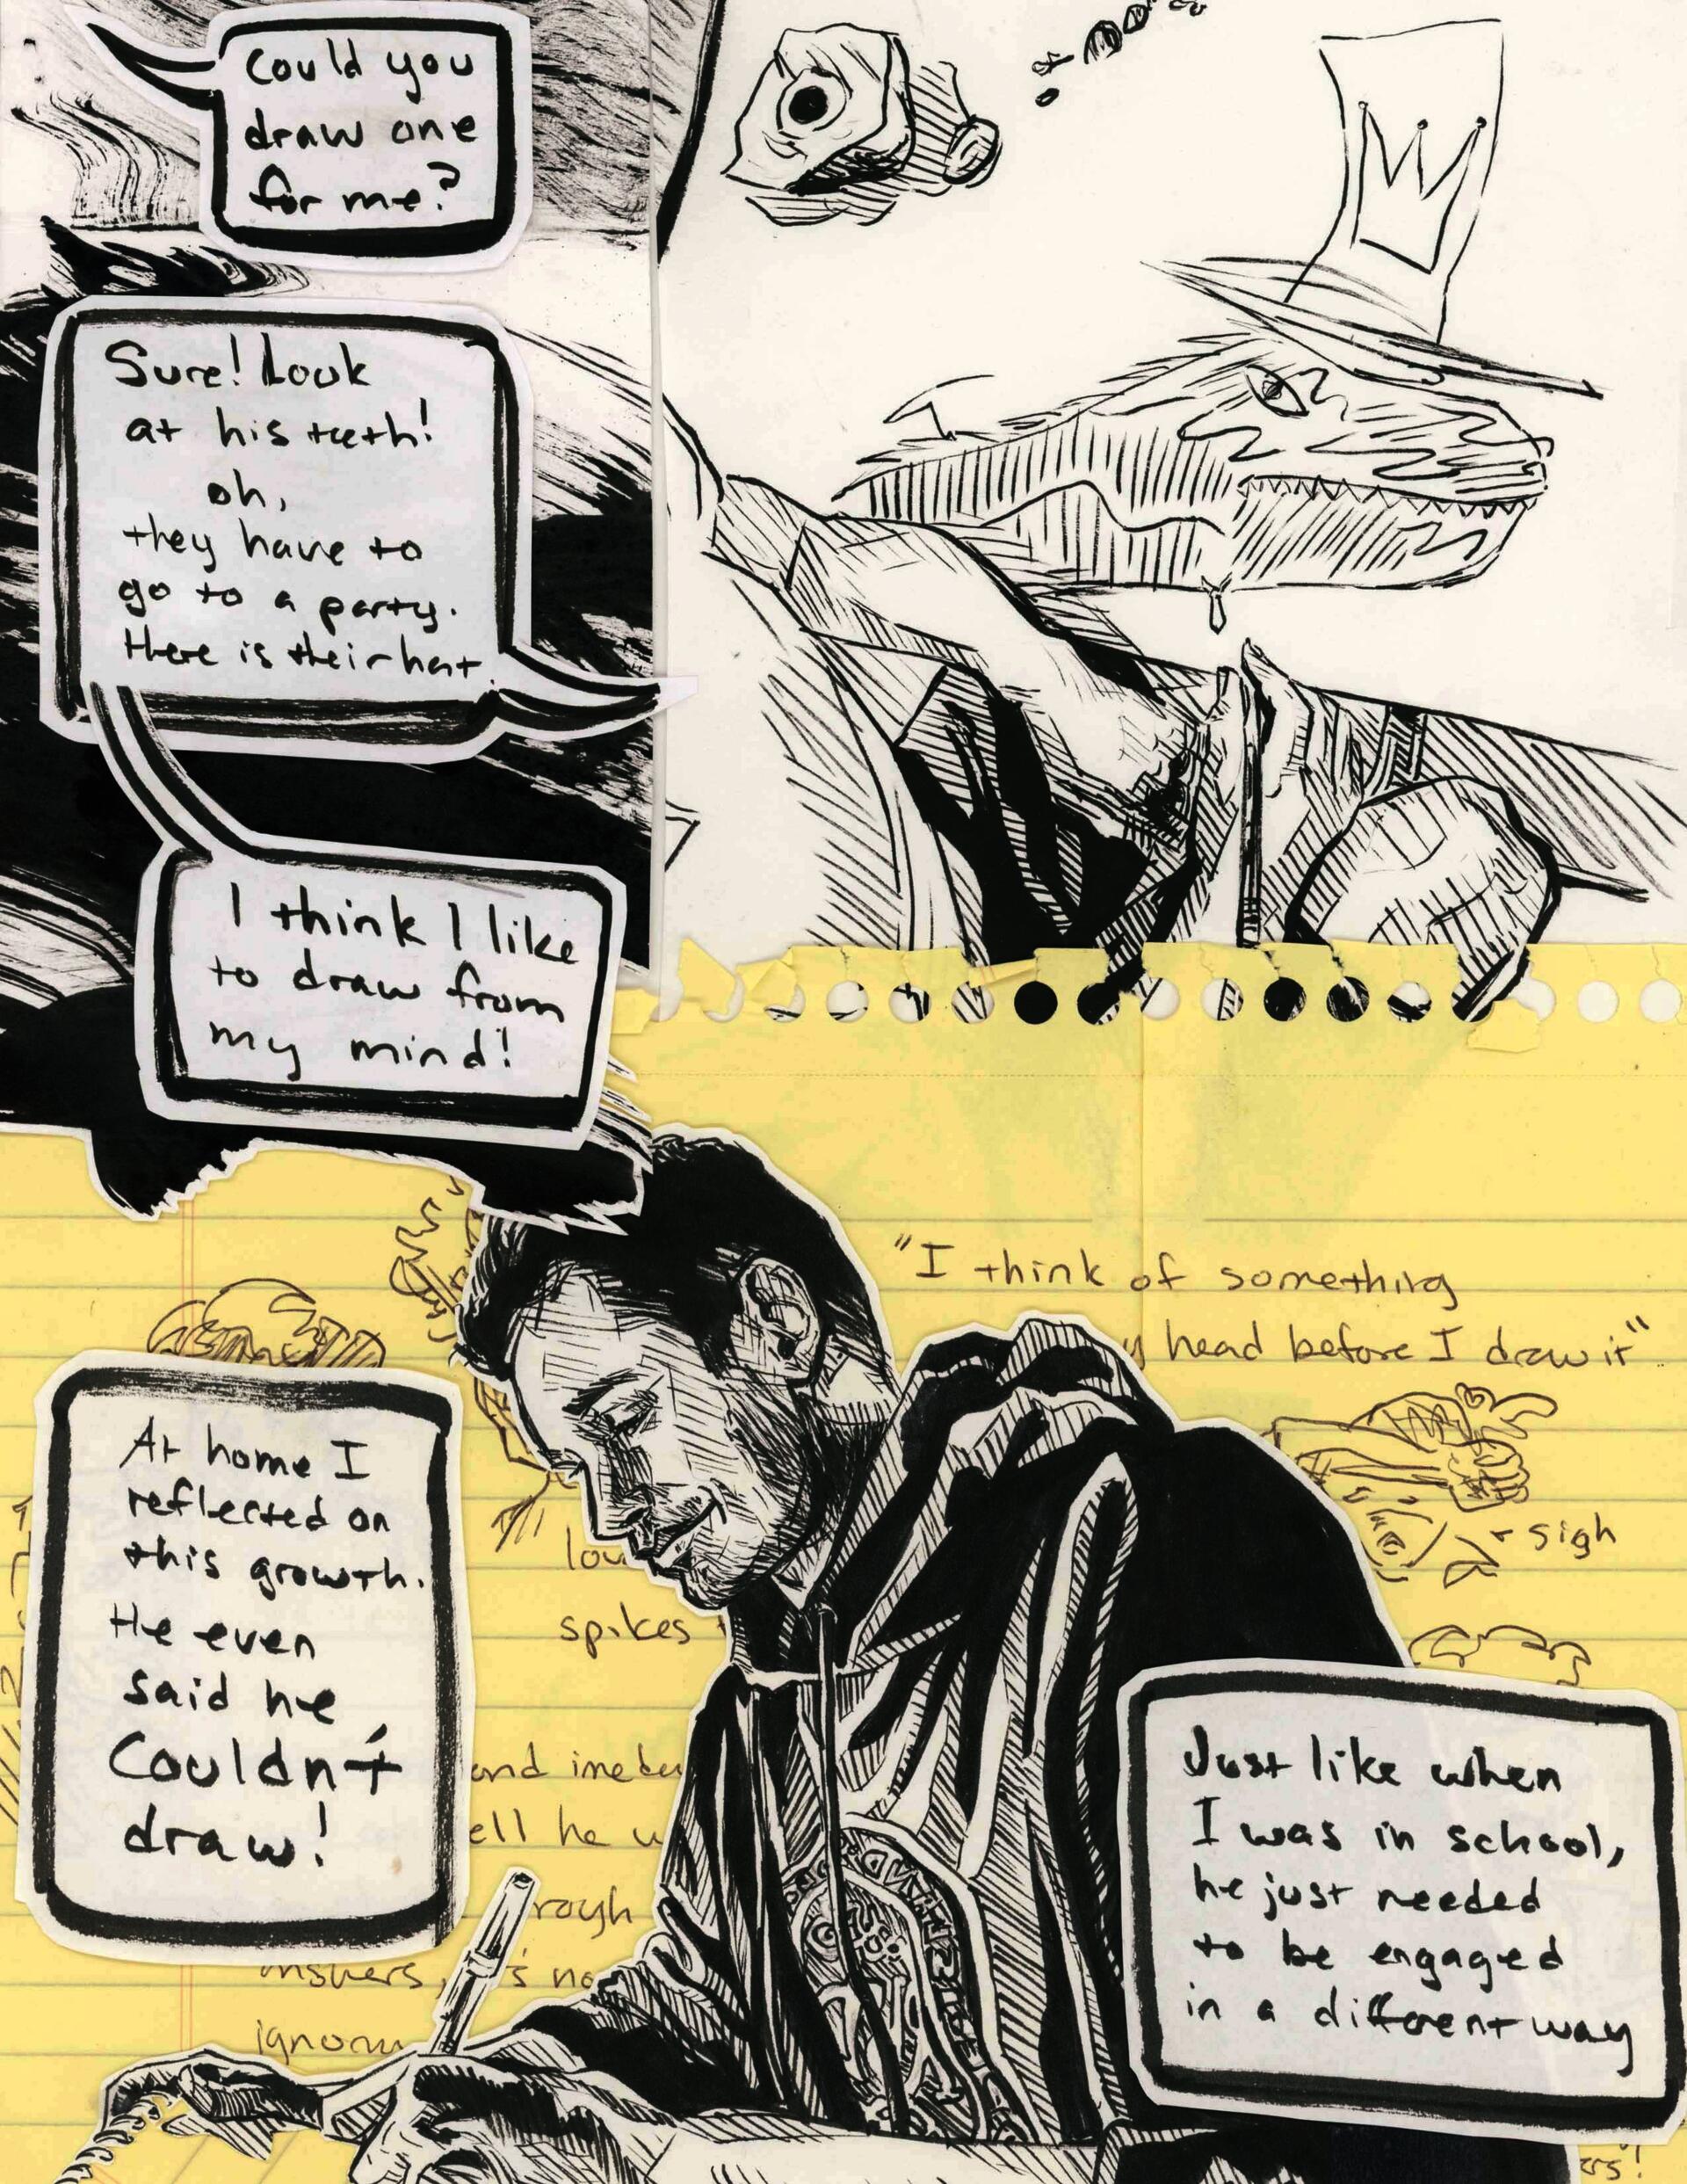 Could you
draw one
for me?
Sure! Look
at his teeth!
oh,
they have to
go to a party.
there is their hat.
I think I like
to draw from
my mind!
"I think of something
head before I draw it"
sigh
spikes
At home I
reflected on
this growth.
He even
said he
Couldn't
draw!
and
ell he
rough
answers,
Just like when
I was in school,
he just needed
to be engaged
in a different way